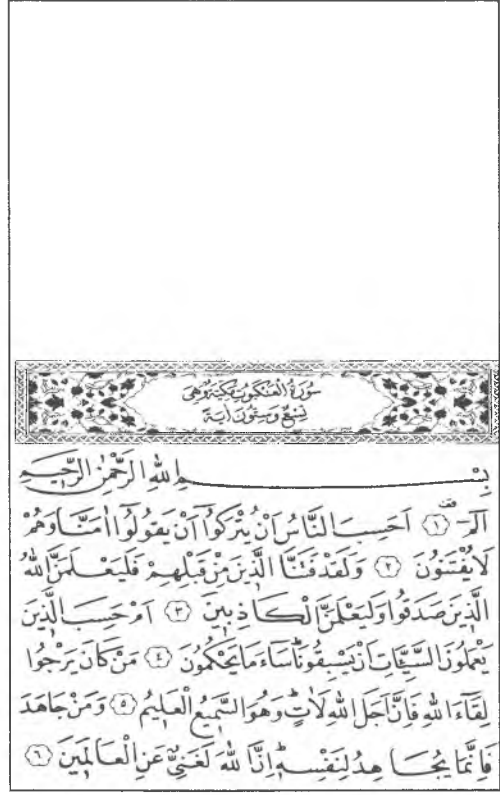 سُورَةُ الْعَنْكَبُوتِ مَكِّيَّةٌ وَهِيَ
تِسْعٌ وَسِتُّونَ اٰيَةً
بِسْمِ اللّٰهِ الرَّحْمٰنِ الرَّحِيمِ
الٓمٓ ﴿١﴾ اَحَسِبَ النَّاسُ اَنْ يُتْرَكُٓوا اَنْ يَقُولُٓوا اٰمَنَّا وَهُمْ
لَا يُفْتَنُونَ ﴿٢﴾ وَلَقَدْ فَتَنَّا الَّذِينَ مِنْ قَبْلِهِمْ فَلَيَعْلَمَنَّ اللّٰهُ
الَّذِينَ صَدَقُوا وَلَيَعْلَمَنَّ الْكَاذِبِينَ ﴿٣﴾ اَمْ حَسِبَ الَّذِينَ
يَعْمَلُونَ السَّيِّـَٔاتِ اَنْ يَسْبِقُونَاۜ سَٓاءَ مَا يَحْكُمُونَ ﴿٤﴾ مَنْ كَانَ يَرْجُوا
لِقَٓاءَ اللّٰهِ فَاِنَّ اَجَلَ اللّٰهِ لَاٰتٍۜ وَهُوَ السَّمِيعُ الْعَلِيمُ ﴿٥﴾ وَمَنْ جَاهَدَ
فَاِنَّمَا يُجَاهِدُ لِنَفْسِهٖۜ اِنَّ اللّٰهَ لَغَنِيٌّ عَنِ الْعَالَمِينَ ﴿٦﴾